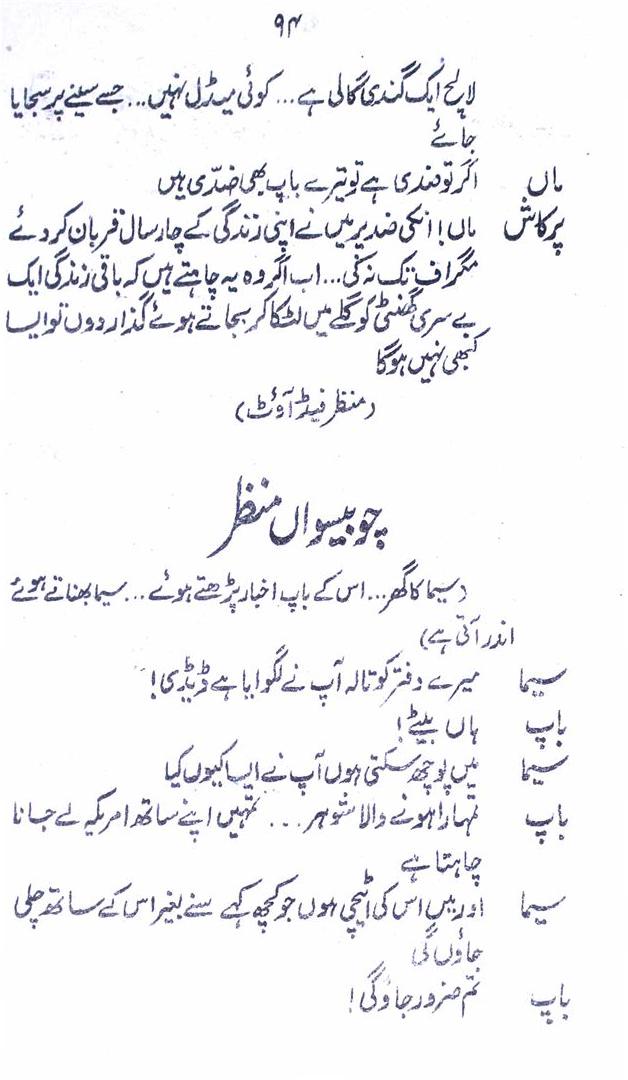 ۹۴
لالچ ایک گندی گالی ہے... کوئی میڈل نہیں... جسے سینے پر سجایا
جائے
ماں اگر تو ضدی ہے تو تیرے باپ بھی ضدّی ہیں
پرکاش ماں! انکی ضد پر میں نے اپنی زندگی کے چار سال قربان کر دئے
مگر اف تک نہ کی... اب اگر وہ یہ چاہتے ہیں کہ باقی زندگی ایک
بے سری گھنٹی کو گلے میں لٹکا کر بجاتے ہوئے گذار دوں تو ایسا
کبھی نہیں ہوگا
(منظر فیڈ آؤٹ)
چوبیسواں منظر
(سیما کا گھر... اس کے باپ اخبار پڑھتے ہوئے... سیما بھناتے ہوئے
اندر آتی ہے)
سیما میرے دفتر کو تالہ آپ نے لگوایا ہے ڈیڈی!
باپ ہاں بیٹے!
سیما میں پوچھ سکتی ہوں آپ نے ایسا کیوں کیا
باپ تمہارا ہونے والا شوہر... تمہیں اپنے ساتھ امریکہ لے جانا
چاہتا ہے
سیما اور میں اس کی اٹیچی ہوں جو کچھ کہے سنے بغیر اس کے ساتھ چلی
جاؤں گی
باپ تم ضرور جاؤگی!